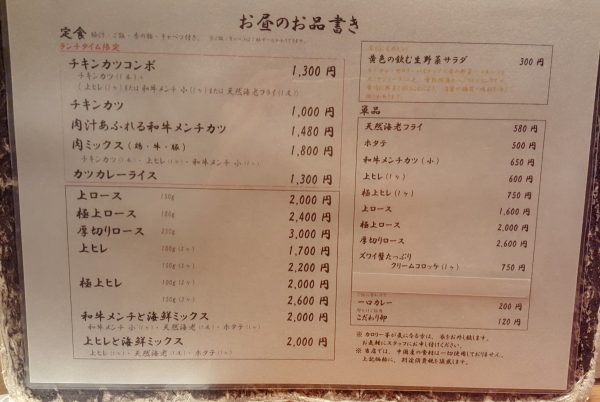 お昼のお品書き
定食 味噌汁・ご飯・香の物・キャベツ付き。
ランチタイム限定
チキンカツコンボ 1,300 円
チキンカツ(1本)+
(上ヒレ(1ヶ)または 和牛メンチ 小(1ヶ)または 天然海老フライ(1本))
チキンカツ 1,000 円
肉汁あふれる和牛メンチカツ 1,480 円
肉ミックス(鶏・牛・豚) 1,800 円
チキンカツ(1本)、上ヒレ(1ヶ)・和牛メンチ 小(1ヶ)
カツカレーライス 1,300 円
上ロース 150g 2,000 円
極上ロース 180g 2,400 円
厚切りロース 250g 3,000 円
上ヒレ 100g(2ヶ) 1,700 円
150g(3ヶ) 2,200 円
極上ヒレ 100g(2ヶ) 2,000 円
150g(3ヶ) 2,600 円
和牛メンチと海鮮ミックス 2,000 円
和牛メンチ 小(1ヶ)・天然海老(1本)・ホタテ(1ヶ)
上ヒレと海鮮ミックス 2,000 円
上ヒレ(1ヶ)・天然海老(1本)・ホタテ(1ヶ)
黄色の飲む生野菜サラダ 300 円
単品
天然海老フライ 580 円
ホタテ 500 円
和牛メンチカツ(小) 650 円
上ヒレ(1ヶ) 600 円
極上ヒレ(1ヶ) 750 円
上ロース 1,600 円
極上ロース 2,000 円
厚切りロース 2,600 円
ズワイ蟹たっぷり
クリームコロッケ(1ヶ) 750 円
一口カレー 200 円
こだわり卵 120 円
※ カロリー等が気になる方は、衣をお外し致します。
お気軽にスタッフにお申し付けください。
※ 当店では、中国産の食材は一切使用しておりません。
上記価格に、別途消費税を頂戴します。